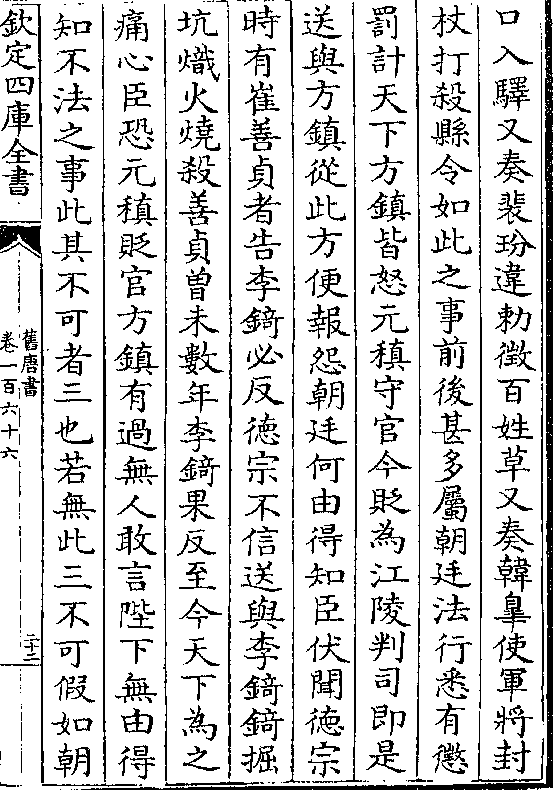 口入驛又奏裴玢違勅徵百姓草又奏韓臯使軍將封
杖打殺縣令如此之事前後甚多屬朝廷法行悉有懲
罰計天下方鎮皆怒元稹守官今貶為江陵判司即是
送與方鎮從此方便報怨朝廷何由得知臣伏聞徳宗
時有崔善貞者告李錡必反徳宗不信送與李錡錡掘
坑熾火燒殺善貞曽未數年李錡果反至今天下為之
痛心臣恐元稹貶官方鎮有過無人敢言陛下無由得
知不法之事此其不可者三也若無此三不可假如朝
欽定四庫全書
舊唐書
卷一百六十六
二十二